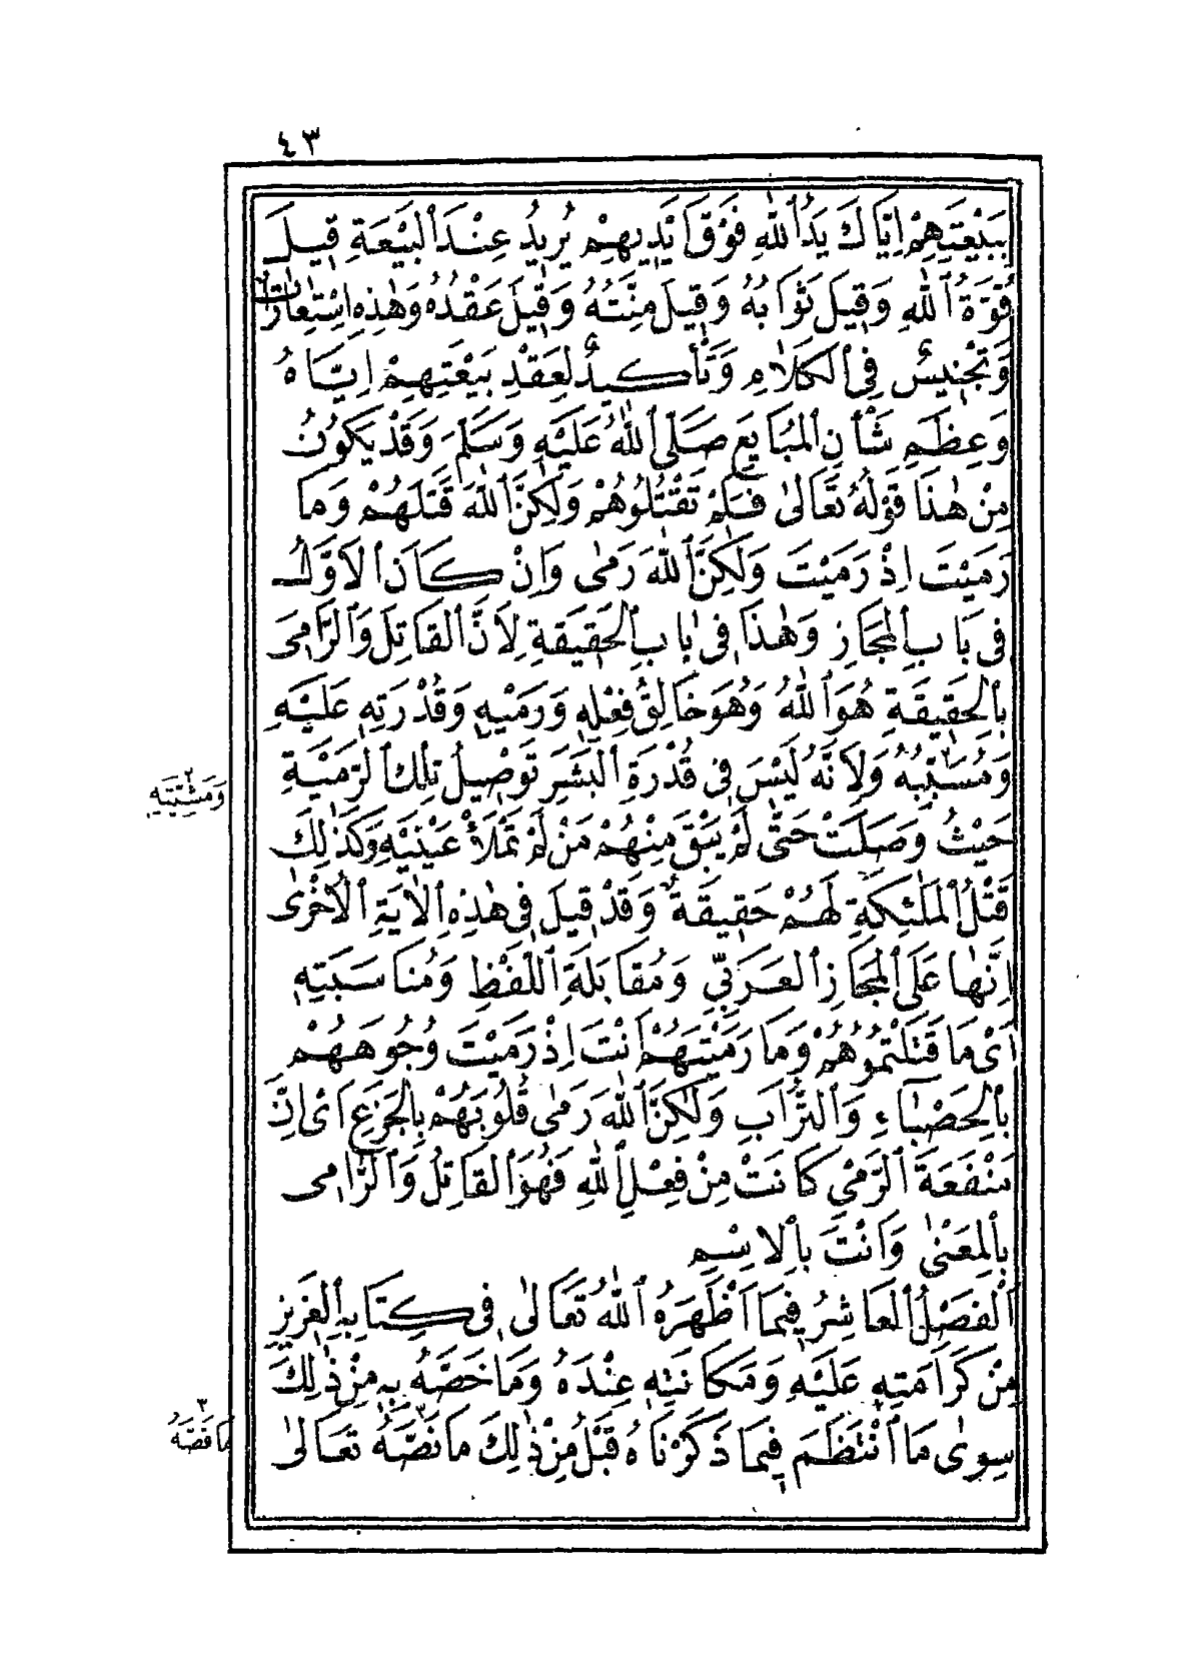 ٤٣
بِبَيْعَتِهِمْ اِيَّاكَ يَدُ ٱللّٰهِ فَوْقَ اَيْدِيهِمْ يُرِيدُ عِنْدَ ٱلْبَيْعَةِ قِيلَ
قُوَّةُ ٱللّٰهِ وَقِيلَ ثَوَابُهُ وَقِيلَ مِنَّتُهُ وَقِيلَ عَقْدُهُ وَهٰذِهِ اِسْتِعَارَاتٌ
وَتَجْنِيسٌ فِى ٱلْكَلَامِ وَتَأْكِيدٌ لِعَقْدِ بَيْعَتِهِمْ اِيَّاهُ
وَعِظَمِ شَأْنِ ٱلْمُبَايَعِ صَلَّى ٱللّٰهُ عَلَيْهِ وَسَلَّمَ وَقَدْ يَكُونُ
مِنْ هٰذَا قَوْلُهُ تَعَالٰى فَلَمْ تَقْتُلُوهُمْ وَلٰكِنَّ ٱللّٰهَ قَتَلَهُمْ وَمَا
رَمَيْتَ اِذْ رَمَيْتَ وَلٰكِنَّ ٱللّٰهَ رَمٰى وَاِنْ كَانَ ٱلْاَوَّلُ
فِى بَابِ ٱلْمَجَازِ وَهٰذَا فِى بَابِ ٱلْحَقِيقَةِ لِاَنَّ ٱلْقَاتِلَ وَٱلرَّامِىَ
بِٱلْحَقِيقَةِ هُوَ ٱللّٰهُ وَهُوَ خَالِقُ فِعْلِهِ وَرَمْيِهِ وَقُدْرَتِهِ عَلَيْهِ
وَمُسَبِّبُهُ وَلِاَنَّهُ لَيْسَ فِى قُدْرَةِ ٱلْبَشَرِ تَوْصِيلُ تِلْكَ ٱلرَّمْيَةِ
٢
وَمَشِيَّتِهِ
حَيْثُ وَصَلَتْ حَتّٰى لَمْ يَبْقَ مِنْهُمْ مَنْ لَمْ تَمْلَأْ عَيْنَيْهِ وَكَذٰلِكَ
قَتْلُ ٱلْمَلٰئِكَةِ لَهُمْ حَقِيقَةٌ وَقَدْ قِيلَ فِى هٰذِهِ ٱلْاٰيَةِ ٱلْاُخْرٰى
اِنَّهَا عَلَى ٱلْمَجَازِ ٱلْعَرَبِىِّ وَمُقَابَلَةِ ٱللَّفْظِ وَمُنَاسَبَتِهِ
اَىْ مَا قَتَلْتُمُوهُمْ وَمَا رَمَيْتَهُمْ اَنْتَ اِذْ رَمَيْتَ وُجُوهَهُمْ
بِٱلْحَصْبَاءِ وَٱلتُّرَابِ وَلٰكِنَّ ٱللّٰهَ رَمٰى قُلُوبَهُمْ بِالْجَزَعِ اَىْ اِنَّ
مَنْفَعَةَ ٱلرَّمْىِ كَانَتْ مِنْ فِعْلِ ٱللّٰهِ فَهُوَ ٱلْقَاتِلُ وَٱلرَّامِى
بِٱلْمَعْنٰى وَاَنْتَ بِٱلْاِسْمِ
اَلْفَصْلُ ٱلْعَاشِرُ فِيمَا اَظْهَرَهُ ٱللّٰهُ تَعَالٰى فِى كِتَابِهِ ٱلْعَزِيزِ
مِنْ كَرَامَتِهِ عَلَيْهِ وَمَكَانَتِهِ عِنْدَهُ وَمَا خَصَّهُ بِهِ مِنْ ذٰلِكَ
سِوٰى مَا ٱنْتَظَمَ فِيمَا ذَكَرْنَاهُ قَبْلُ مِنْ ذٰلِكَ مَا نَصَّهُ تَعَالٰى
٣
مَا قَصَّهُ